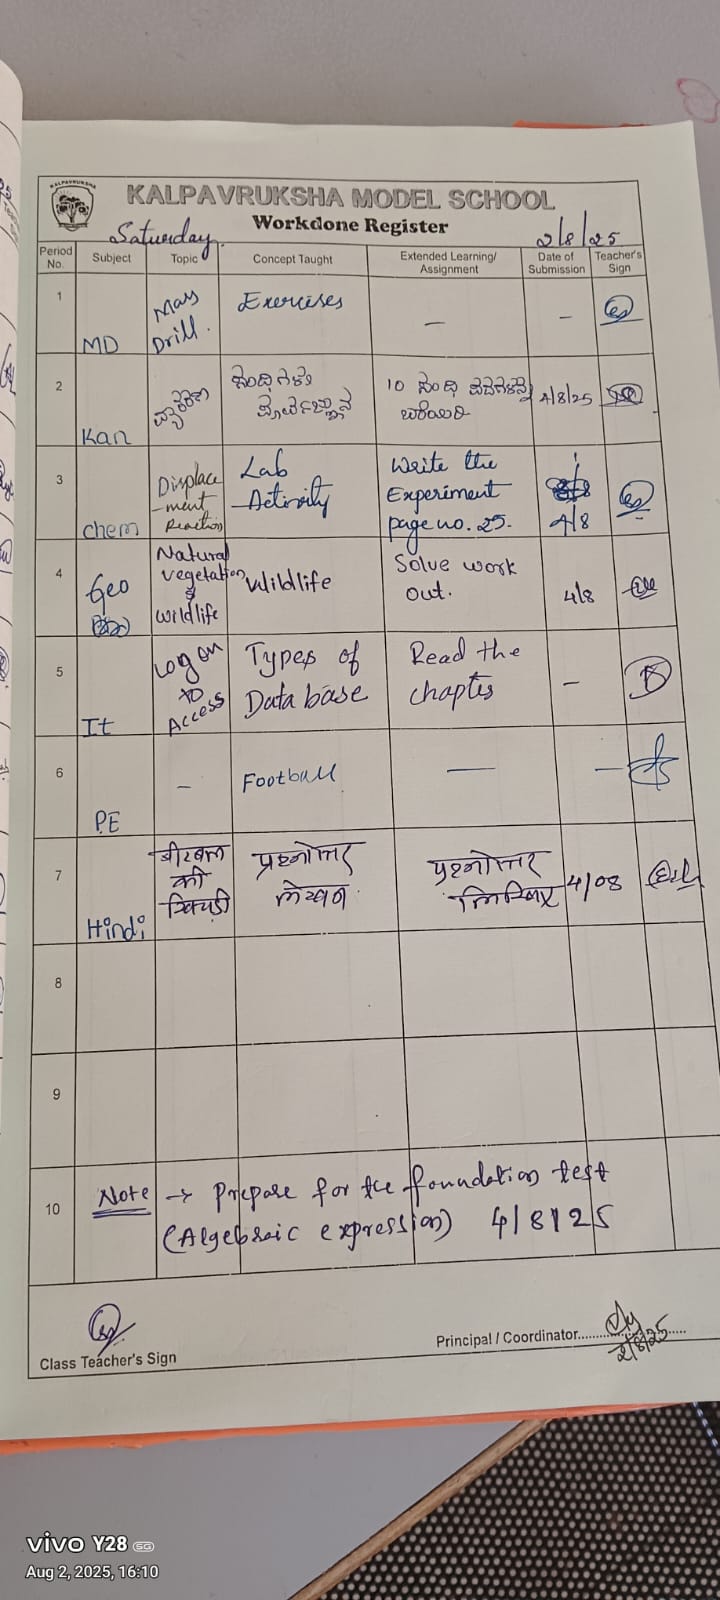 KALPAVRUKSHA
KALPAVRUKSHA MODEL SCHOOL
Workdone Register
Saturday
2/8/25
Period No.
Subject
Topic
Concept Taught
Extended Learning/ Assignment
Date of Submission
Teacher's Sign
1
MD
Mass
Drill.
Exercises
—
–
2
Kan
10 ಸಂಧಿ
ಬರೆಯಿರಿ
4/8/25
3
Chem
Displace
-ment
Reaction
Lab
Activity
Write the
Experiment
page no. 25.
4/8
4
Geo
Natural
vegetation
&
wildlife
Wildlife
Solve work
out.
4/8
5
It
Log on
to
Access
Types of
Data base
Read the
chapter
–
6
PE
–
Football
—
—
7
Hindi
बीरबल
की
खिचड़ी
प्रश्नोत्तर
लेखन
प्रश्नोत्तर
लिखिए
4/08
8
9
10
Note → Prepare for the foundation test
(Algebraic expression) 4/8/25
Class Teacher's Sign
Principal / Coordinator..................
2/8/25
vivo Y28 5G
Aug 2, 2025, 16:10